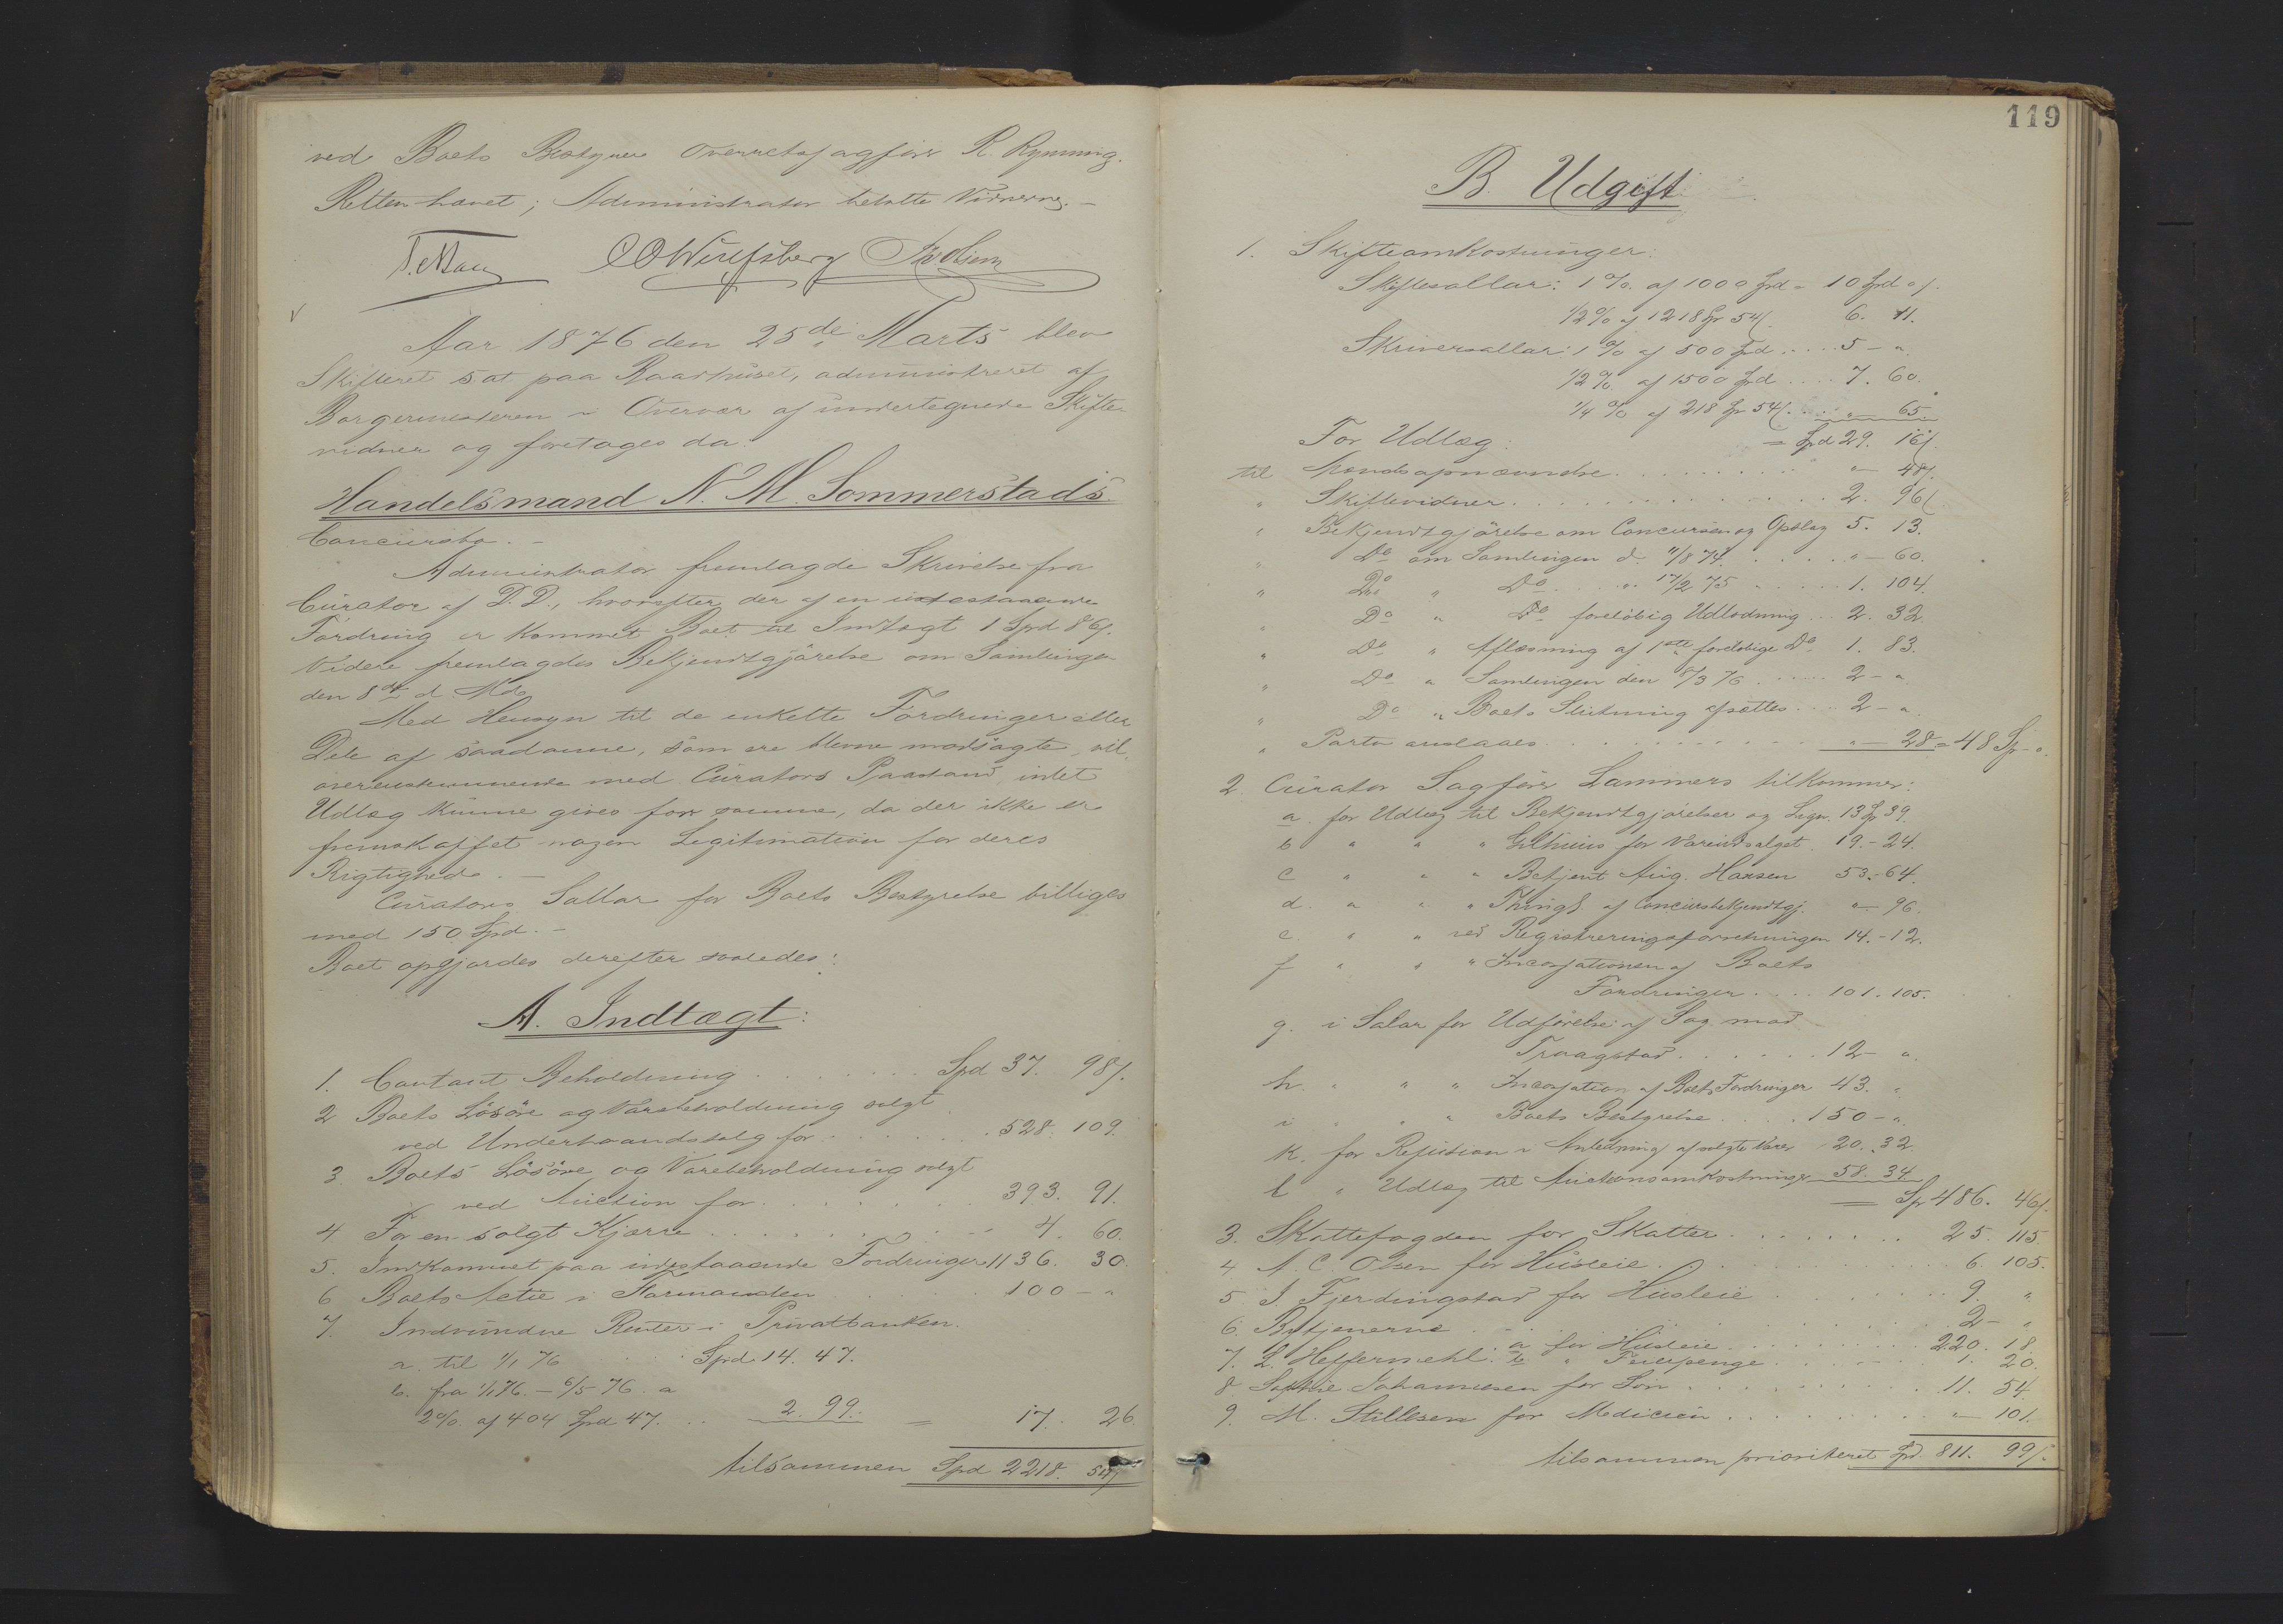 ved Boets Bestyrer Overretssagfører R. Rynning.
Retten hævet; Administrator betalte Vidnerne. –
C O Wulfsberg
Aar 1876 den 25de Marts blev
Skifteret sat paa Raadhuset, administreret af
Borgermesteren i Overvær af undertegnede Skifte-
vidner og foretoges da:
Handelsmand N. M. Sommerstads
Concursbo. –
Administrator fremlagde Skrivelse fra
Curator af D.D., hvorefter der af en udestaaende
Fordring er kommet Boet til Indtægt 1 Spd 86 ſ.
Videre fremlagdes Bekjendtgjørelse om Samlingen
den 8de d. Md.
Med Hensyn til de enkelte Fordringer eller
Dele af saadanne, som ere blevne modsagte, vil
overensstemmende med Curators Paastand intet
Udlæg kunne gives for samme, da der ikke er
fremskaffet nogen Legitimation for deres
Rigtighed. –
Curators Sallar for Boets Bestyrelse billiges
med 150 Spd. –
Boet opgjordes derefter saaledes:
A. Indtægt:
1. Contant Beholdning . . . . . . . Spd 37. 98 ſ.
2 Boets Løsøre og Varebeholdning solgt
ved Underhaandssalg for . . . . . . . 528. 109.
3. Boets Løsøre og Varebeholdning solgt
ved Auction for . . . . . . . 393. 91.
4 For en solgt Kjærre . . . . . . . 4. 60.
5. Indkommet paa udestaaende Fordringer 1136. 30.
6 Boets Actie i Formanden . . . . . 100 – "
7. Indvundne Renter i Privatbanken.
a. til 1/1 76 . . . Spd 14. 47.
b. fra 1/1 76. – 6/5 76. a
2% af 404 Spd 47. . . 2. 99. = 17. 26.
tilsammen Spd 2218. 54 ſ
119
B. Udgift.
1. Skifteomkostninger:
Skiftesallar: 1 % af 1000 Spd = 10 Spd " ſ.
1/2 % af 1218 Sp 54 ſ. 6. 11.
Skriversallar: 1 % af 500 Spd . . . . 5 – "
1/2 % af 1500 Spd . . . . 7. 60.
1/4 % af 218 Sp 54 ſ. . . . " – 65.
For Udlæg: = Spd 29. 16 ſ.
til Mandsopnævnelse . . . . . . . . " – 48 ſ.
" Skiftevidner . . . . . . . . . . 2. 96 ſ.
" Bekjendtgjørelse om Concursen og Opslag 5. 13.
" Do om Samlingen d. 11/8 74. . . . . " – 60.
" Do " Do . . . " 17/2 75 . . . . . 1. 104.
" Do " Do foreløbig Udlodning . . . 2. 32.
" Do " Aflæsning af 1ste foreløbige Do 1. 83.
" Do " Samlingen den 8/3 76 . . . . . 2 – "
" Do " Boets Slutning afsættes . . . . 2 – "
" Porto anslaaes . . . . . . . . . . " – 28 = 48 Sp – ".
2. Curator Sagfører Lammers tilkommer:
a. for Udlæg til Bekjendtgjørelser og Lign. 13 Sp 39.
b " " " Githuus for Vareudsalget. 19. – 24.
c " " " Betjent Aug. Hansen 53. – 64.
d. " " " Thingl. af Concursbekjendtgj. " – 96.
e. " " ved Registreringsforretningen 14. – 12.
f " " " Incassationen af Boets
Fordringer . . . . 101. 105.
g. i Salar for Udførelse af Sag mod
Traagstad . . . . . . . 12 – "
h. " " " Incassation af Boets Fordringer 43. "
i " " " Boets Bestyrelse . . . . . 150 – "
k. for Refusion i Anledning af solgte Varer 20. 32.
l " Udlæg til Auctionsomkostninger 58. 34.
= Sp 486. 46 ſ.
3. Skattefogden for Skatter . . . . . . . 25. 115.
4 N. C. Olsen for Husleie . . . . . . . 6. 105.
5 J. Fjerdingstad for Husleie . . . . . . . 9. "
6. Betjenerne . . . . . . . . . . 2 – "
7. L. Heffermehl: a for Husleie . . . . . . . 220. 18.
b " Feiepenge . . . . . . 1. 20.
8 Sophie Johannesen for Løn . . . . . . . . 11. 54.
9. M. Stillesen for Medicin . . . . . . . . " – 101.
tilsammen prioriteret Spd 811. 99 ſ.